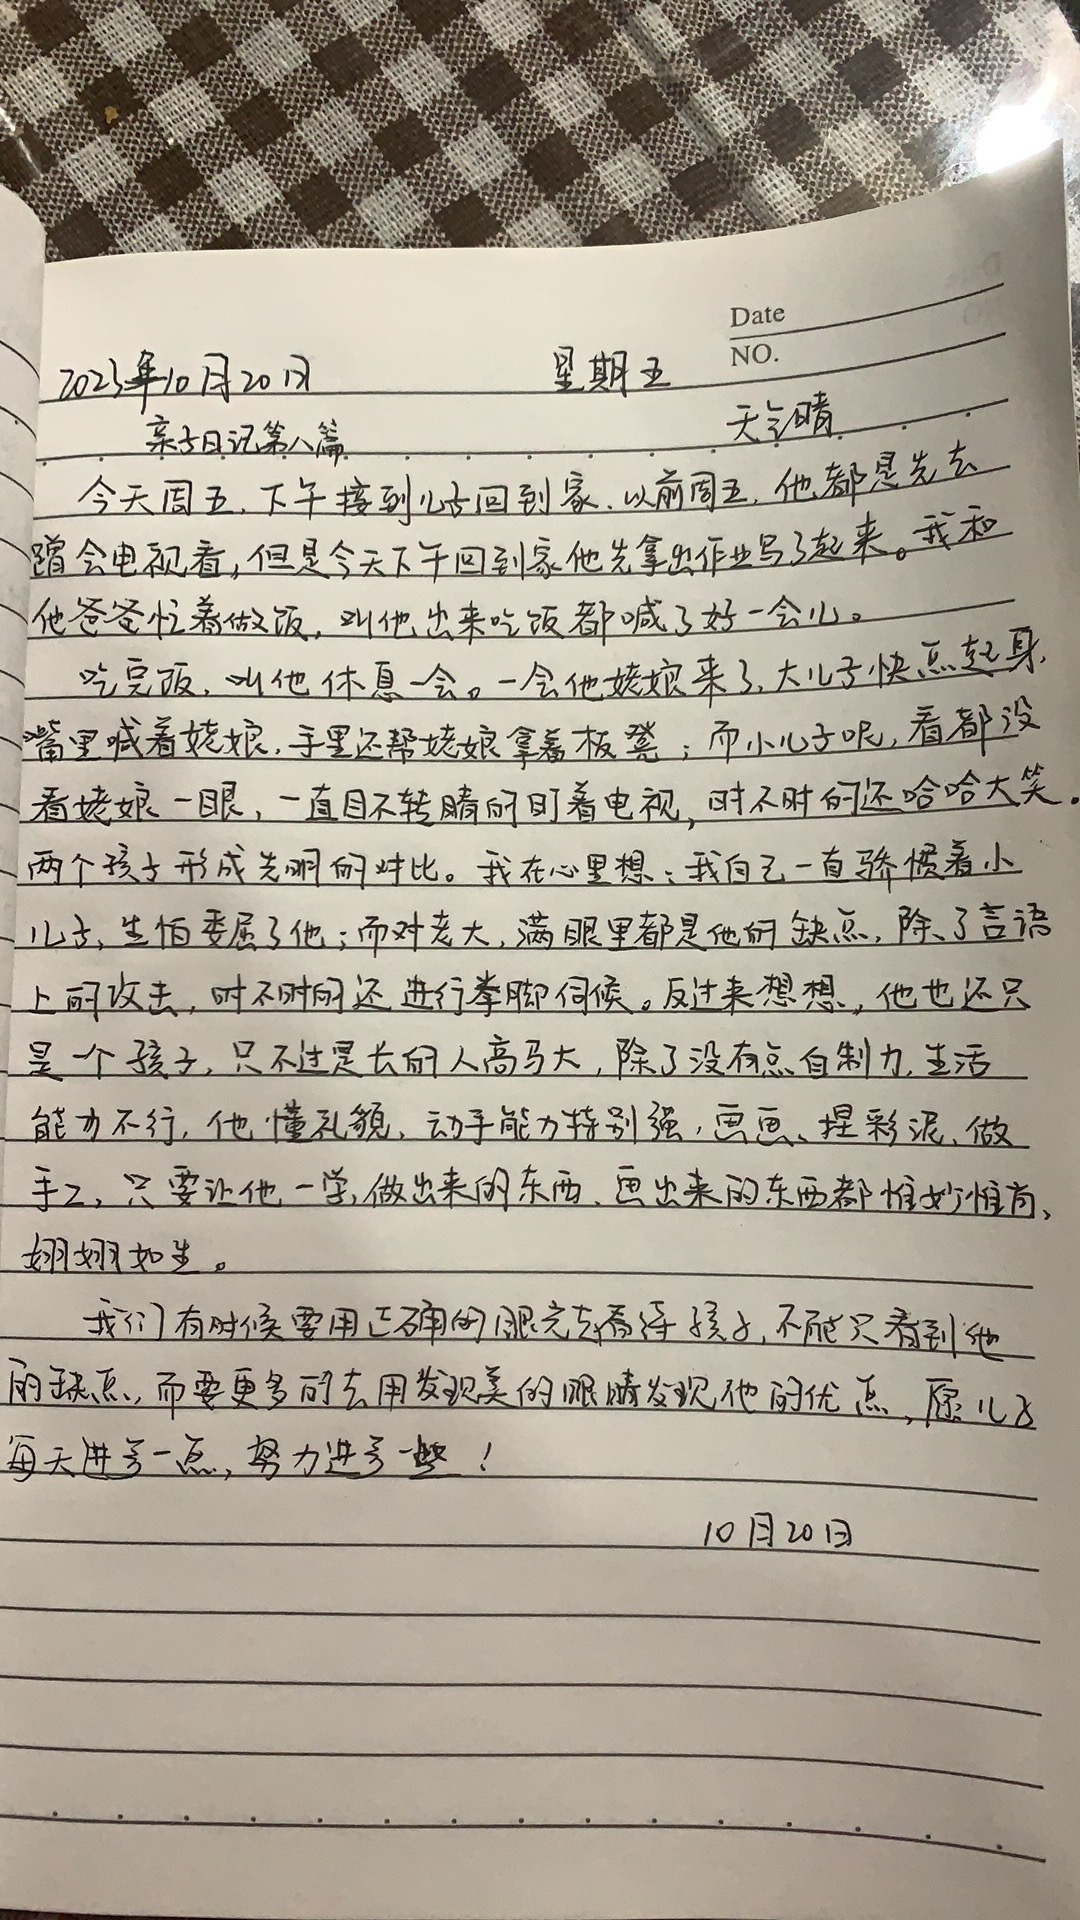 Date
NO.
2023年10月20日 星期五
亲子日记第八篇 天气晴
今天周五,下午接到儿子回到家、以前周五,他都是先去
蹭会电视看,但是今天下午回到家他先拿出作业写了起来。我和
他爸爸忙着做饭,叫他出来吃饭都喊了好一会儿。
吃完饭,叫他休息一会。一会他姥娘来了,大儿子快点起身,
嘴里喊着姥娘,手里还帮姥娘拿着板凳;而小儿子呢,看都没
看姥娘一眼,一直目不转睛的盯着电视,时不时的还哈哈大笑。
两个孩子形成先明的对比。我在心里想:我自己一直骄惯着小
儿子,生怕委屈了他;而对老大,满眼里都是他的缺点,除了言语
上的攻击,时不时的还进行拳脚伺候。反过来想想,他也还只
是一个孩子,只不过是长的人高马大,除了没有点自制力,生活
能力不行,他懂礼貌、动手能力特别强,画画、捏彩泥、做
手工,只要让他一学,做出来的东西、画出来的东西都惟妙惟肖、
栩栩如生。
我们有时候要用正确的眼光去看待孩子,不能只看到他
的缺点,而要更多的去用发现美的眼睛发现他的优点,愿儿子
每天进步一点,努力进步一些!
10月20日